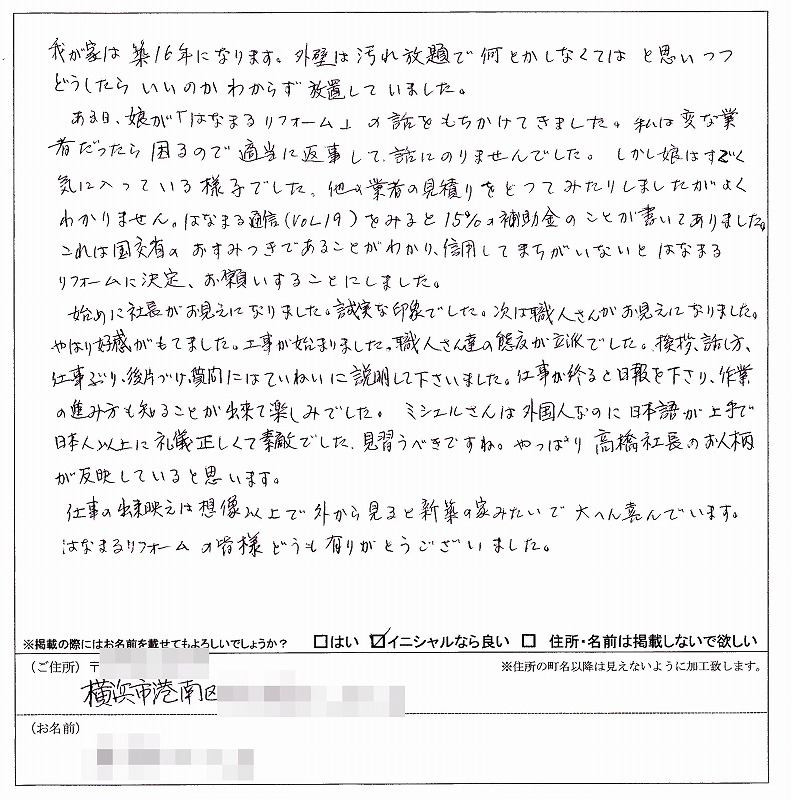 我が家は築16年になります。外壁は汚れ放題で何とかしなくてはと思いつつ
どうしたらいいのかわからず放置していました。
ある日、娘が「はなまるリフォーム」の話をもちかけてきました。私は変な業
者だったら困るので適当に返事して、話にのりませんでした。しかし娘はすごく
気に入っている様子でした、他の業者の見積りをとってみたりしましたがよく
わかりません。はなまる通信(VOL19)をみると15%の補助金のことが書いてありました。
これは国交省のおすみつきであることがわかり、信用してまちがいないとはなまる
リフォームに決定、お願いすることにしました。
始めに社長がお見えになりました。誠実な印象でした。次は職人さんがお見えになりました。
やはり好感がもてました。工事が始まりました。職人さん達の態度が立派でした。挨拶、話し方、
仕事ぶり、後片づけ、質問にはていねいに説明して下さいました。仕事が終ると日報を下さり、作業
の進み方も知ることが出来て楽しみでした。ミシェルさんは外国人なのに日本語が上手で
日本人以上に礼儀正しくて素敵でした、見習うべきですね。やっぱり高橋社長のお人柄
が反映していると思います。
仕事の出来映えは想像以上で外から見ると新築の家みたいで大へん喜んでいます。
はなまるリフォームの皆様どうも有りがとうございました。
※掲載の際にはお名前を載せてもよろしいでしょうか? □はい ☑イニシャルなら良い □ 住所・名前は掲載しないで欲しい
(ご住所)〒 ※住所の町名以降は見えないように加工致します。
横浜市港南区
(お名前)